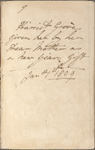 Harriet Grove
given her by her
Dear Mother as
a New Years Gift
Jan 1st 1809